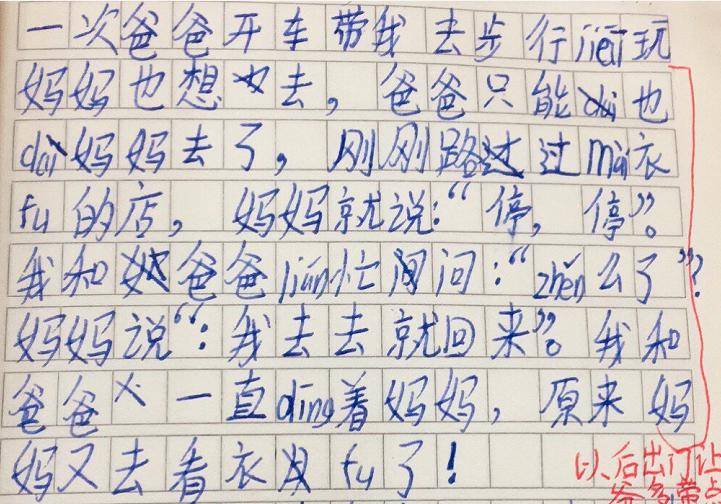 一次爸爸开车带我去步行jiēi玩
妈妈也想去，爸爸只能也
dài妈妈去了，刚刚路过mài衣
fu的店，妈妈就说：“停，停”。
我和爸爸lián忙问：“zhěn么了”？
妈妈说“：我去去就回来”。我和
爸爸一直dīng着妈妈，原来妈
妈又去看衣fu了！
以后出门让
爸多带点